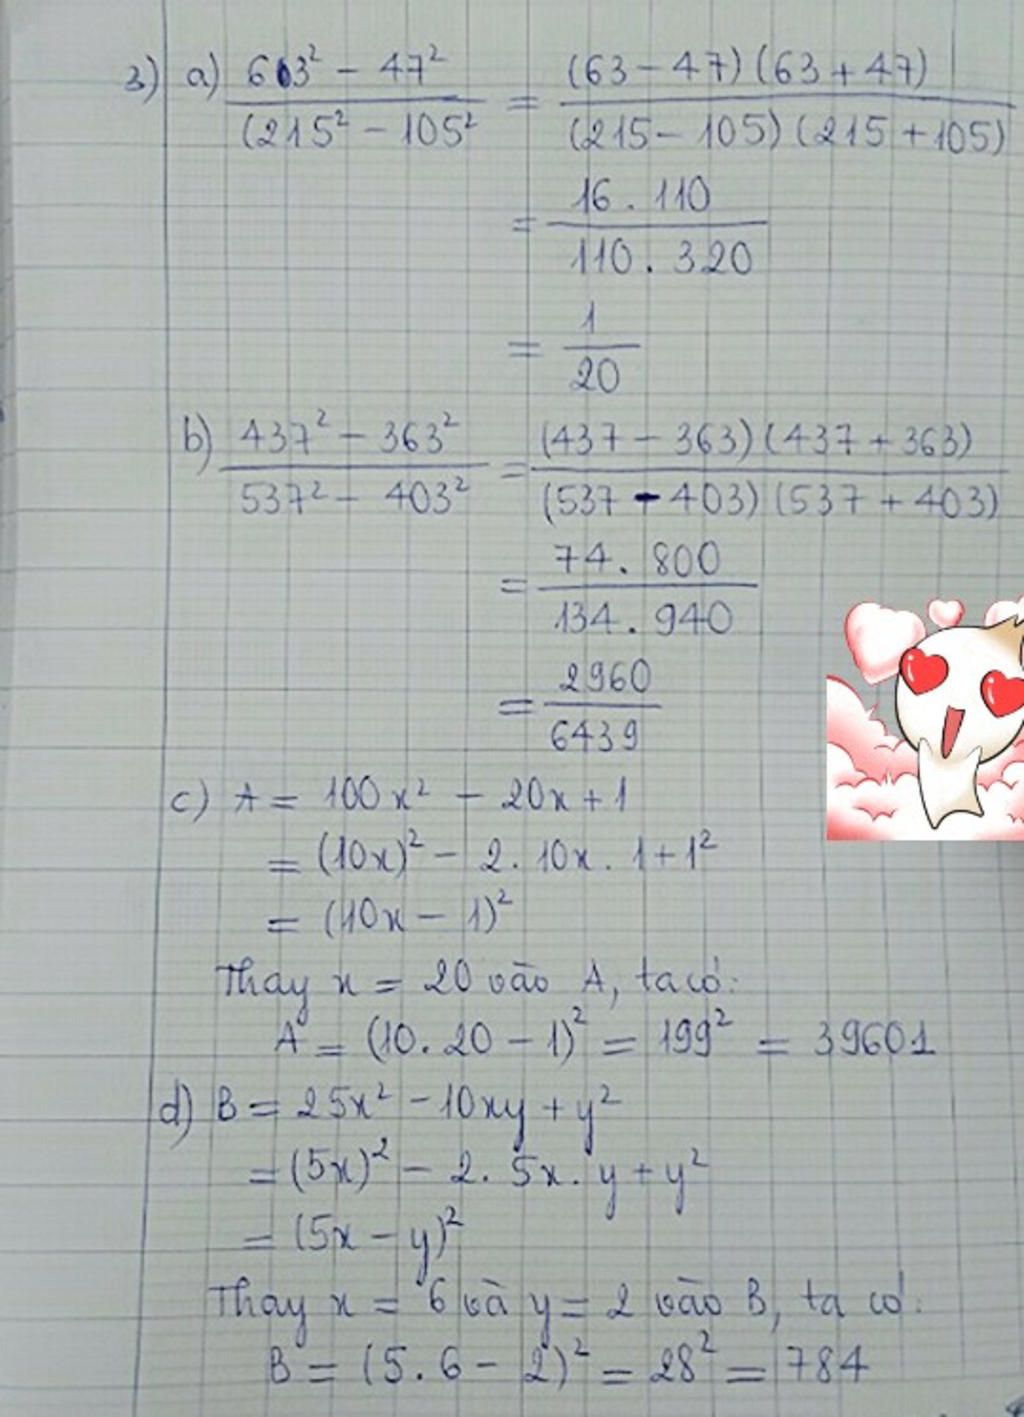 3) a) 63² - 47² / (215² - 105² = (63 - 47)(63 + 47) / (215 - 105)(215 + 105)
= 16 . 110 / 110 . 320
= 1 / 20
b) 437² - 363² / 537² - 403² = (437 - 363)(437 + 363) / (537 - 403)(537 + 403)
= 74 . 800 / 134 . 940
= 2960 / 6439
c) A = 100x² - 20x + 1
= (10x)² - 2. 10x. 1 + 1²
= (10x - 1)²
Thay x = 20 vào A, ta có:
A = (10. 20 - 1)² = 199² = 39601
d) B = 25x² - 10xy + y²
= (5x)² - 2. 5x. y + y²
= (5x - y)²
Thay x = 6 và y = 2 vào B, ta có:
B = (5. 6 - 2)² = 28² = 784